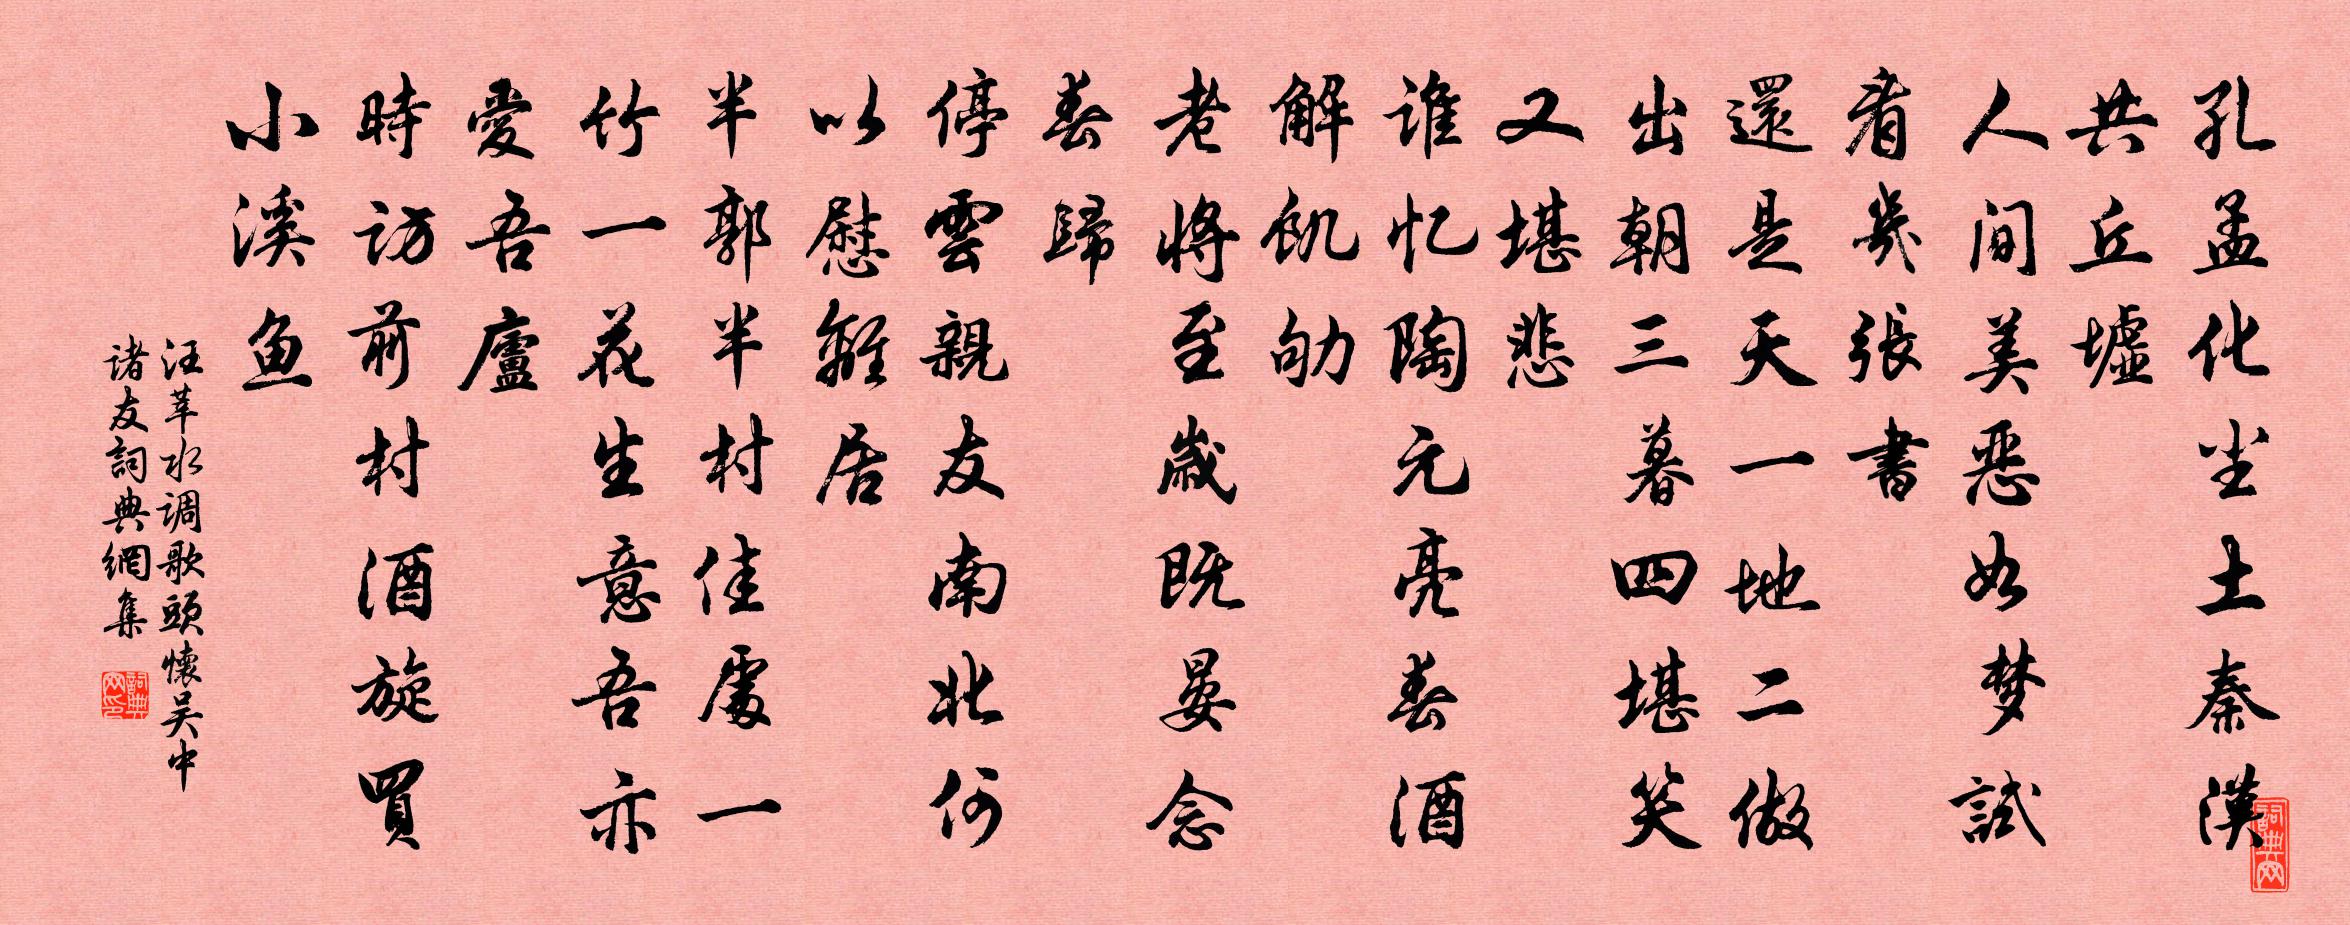 孔孟化尘土秦漢
共丘墟
人间美恶如梦試
看幾張書
還是天一地二做
出朝三暮四堪笑
又堪悲
谁忆陶元亮春酒
解飢劬
老將至歲既晏念
春歸
停雲親友南北何
以慰離居
半郭半村佳處一
竹一花生意吾亦
愛吾廬
時訪前村酒旋買
小溪鱼
汪莘水调歌頭懷吴中
诸友詞典網集
詞典网
詞典网印